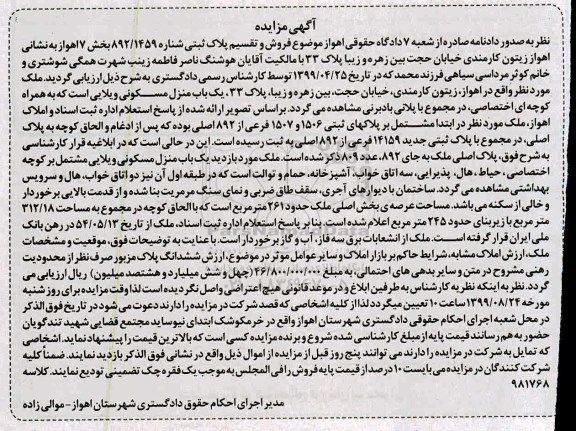 آگهی مزایده
نظر به صدور دادنامه صادره از شعبه ۷ دادگاه حقوقی اهواز موضوع فروش و تقسیم پلاک ثبتی شماره ۸۹۲/۱۴۵۹ بخش ۷ اهواز به نشانی
اهواز زیتون کارمندی خیابان حجت بین زهره و زیبا پلاک ۳۳ با مالکیت آقایان هوشنگ ناصر فاطمه زینب شهرت همگی شوشتری و
خانم کوثر مرداسی سیاهی فرزند محمد که در تاریخ ۱۳۹۹/۰۴/۲۵ توسط کارشناس رسمی دادگستری به شرح ذیل ارزیابی گردید. ملک
مورد نظر واقع در اهواز، زیتون کارمندی، خیابان حجت، بین زهره و زیبا، پلاک ۳۳، یک باب منزل مسکونی ویلایی است که به همراه
کوچه ای اختصاصی، در مجموع با پلانی بادبزنی مشاهده می گردد. براساس تصویر ارائه شده از پاسخ استعلام اداره ثبت اسناد و املاک
اهواز، ملک مورد نظر در ابتدا مشتمل بر پلاکهای ثبتی ۱۵۰۶ و ۱۵۰۷ فرعی از ۸۹۲ اصلی بوده که پس از ادغام و الحاق کوچه به پلاک
اصلی، در مجموع با پلاک ثبتی جدید ۱۴۱۵۹ فرعی از ۸۹۲ اصلی به ثبت رسیده است. این در حالی است که در ابلاغیه قرار کارشناسی
به شرح فوق، پلاک اصلی ملک به جای ۸۹۲، عدد ۸۰۹ ذکر شده است. ملک مورد بازدید یک باب منزل مسکونی ویلایی مشتمل بر کوچه
اختصاصی، حیاط، هال، پذیرایی، سه اتاق خواب، آشپزخانه، حمام و توالت است که در طبقه اول آن نیز دو اتاق خواب، هال و سرویس
بهداشتی مشاهده می گردد. ساختمان با دیوارهای آجری، سقف طاق ضربی و نمای سنگ مرمریت بنا شده و از قدمت بالایی برخوردار
و خالی از سکنه می باشد. مساحت عرصه ی بخش اصلی ملک حدود ۲۶۱ متر مربع است که با الحاق کوچه در مجموع به مساحت ۳۱۲/۱۸
متر مربع با زیربنای حدود ۲۴۵ متر مربع اعلام شده است. بنا بر پاسخ استعلام اداره ثبت اسناد، ملک از تاریخ ۵۴/۰۵/۱۲ در رهن بانک
ملی ایران قرار گرفته است. ملک از انشعابات برق سه فاز، آب و گاز برخوردار است. با عنایت به توضیحات فوق، موقعیت و مشخصات
ملک، ارزش املاک مشابه، شرایط حاکم بر بازار املاک و سایر عوامل موثر در موضوع، ارزش ششدانگ پلاک مزبور صرف نظر از محدودیت
رهنی مشروح در متن و سایر بدهی های احتمالی، به مبلغ ۴۶/۸۰۰/۰۰۰/۰۰۰ (چهل و شش میلیارد و هشتصد میلیون) ریال ارزیابی می
گردد. نظر به اینکه نظریه کارشناس به طرفین ابلاغ و در موعد قانونی هیچ اعتراضی واصل نگردیده است لذا وقت مزایده برای روز شنبه
مورخه ۱۳۹۹/۰۸/۲۴ ساعت ۱۰ تعیین میگردد لذا از کلیه اشخاصی که قصد شرکت در مزایده را دارند دعوت می شود در تاریخ فوق الذکر
در محل شعبه اجرای احکام حقوقی دادگستری شهرستان اهواز واقع در خرمکوشک ابتدای نیوساید مجتمع قضایی شهید تندگویان
حضور به هم رسانند قیمت پایه از مبلغ کارشناسی شده شروع و برنده مزایده کسی است که بالاترین قیمت را پیشنهاد نماید. اشخاصی
که تمایل به شرکت در مزایده را دارند می توانند پنج روز قبل از مزایده از اموال ذیل واقع در نشانی فوق الذکر بازدید نمایند. ضمنا کلیه
شرکت کنندگان در مزایده می بایست ۱۰ درصد از قیمت پایه فروش را فی المجلس به موجب یک فقره چک تضمینی تودیع نمایند. کلاسه
۹۸۱۷۶۸
مدیر اجرای احکام حقوق دادگستری شهرستان اهواز - موالی زاده